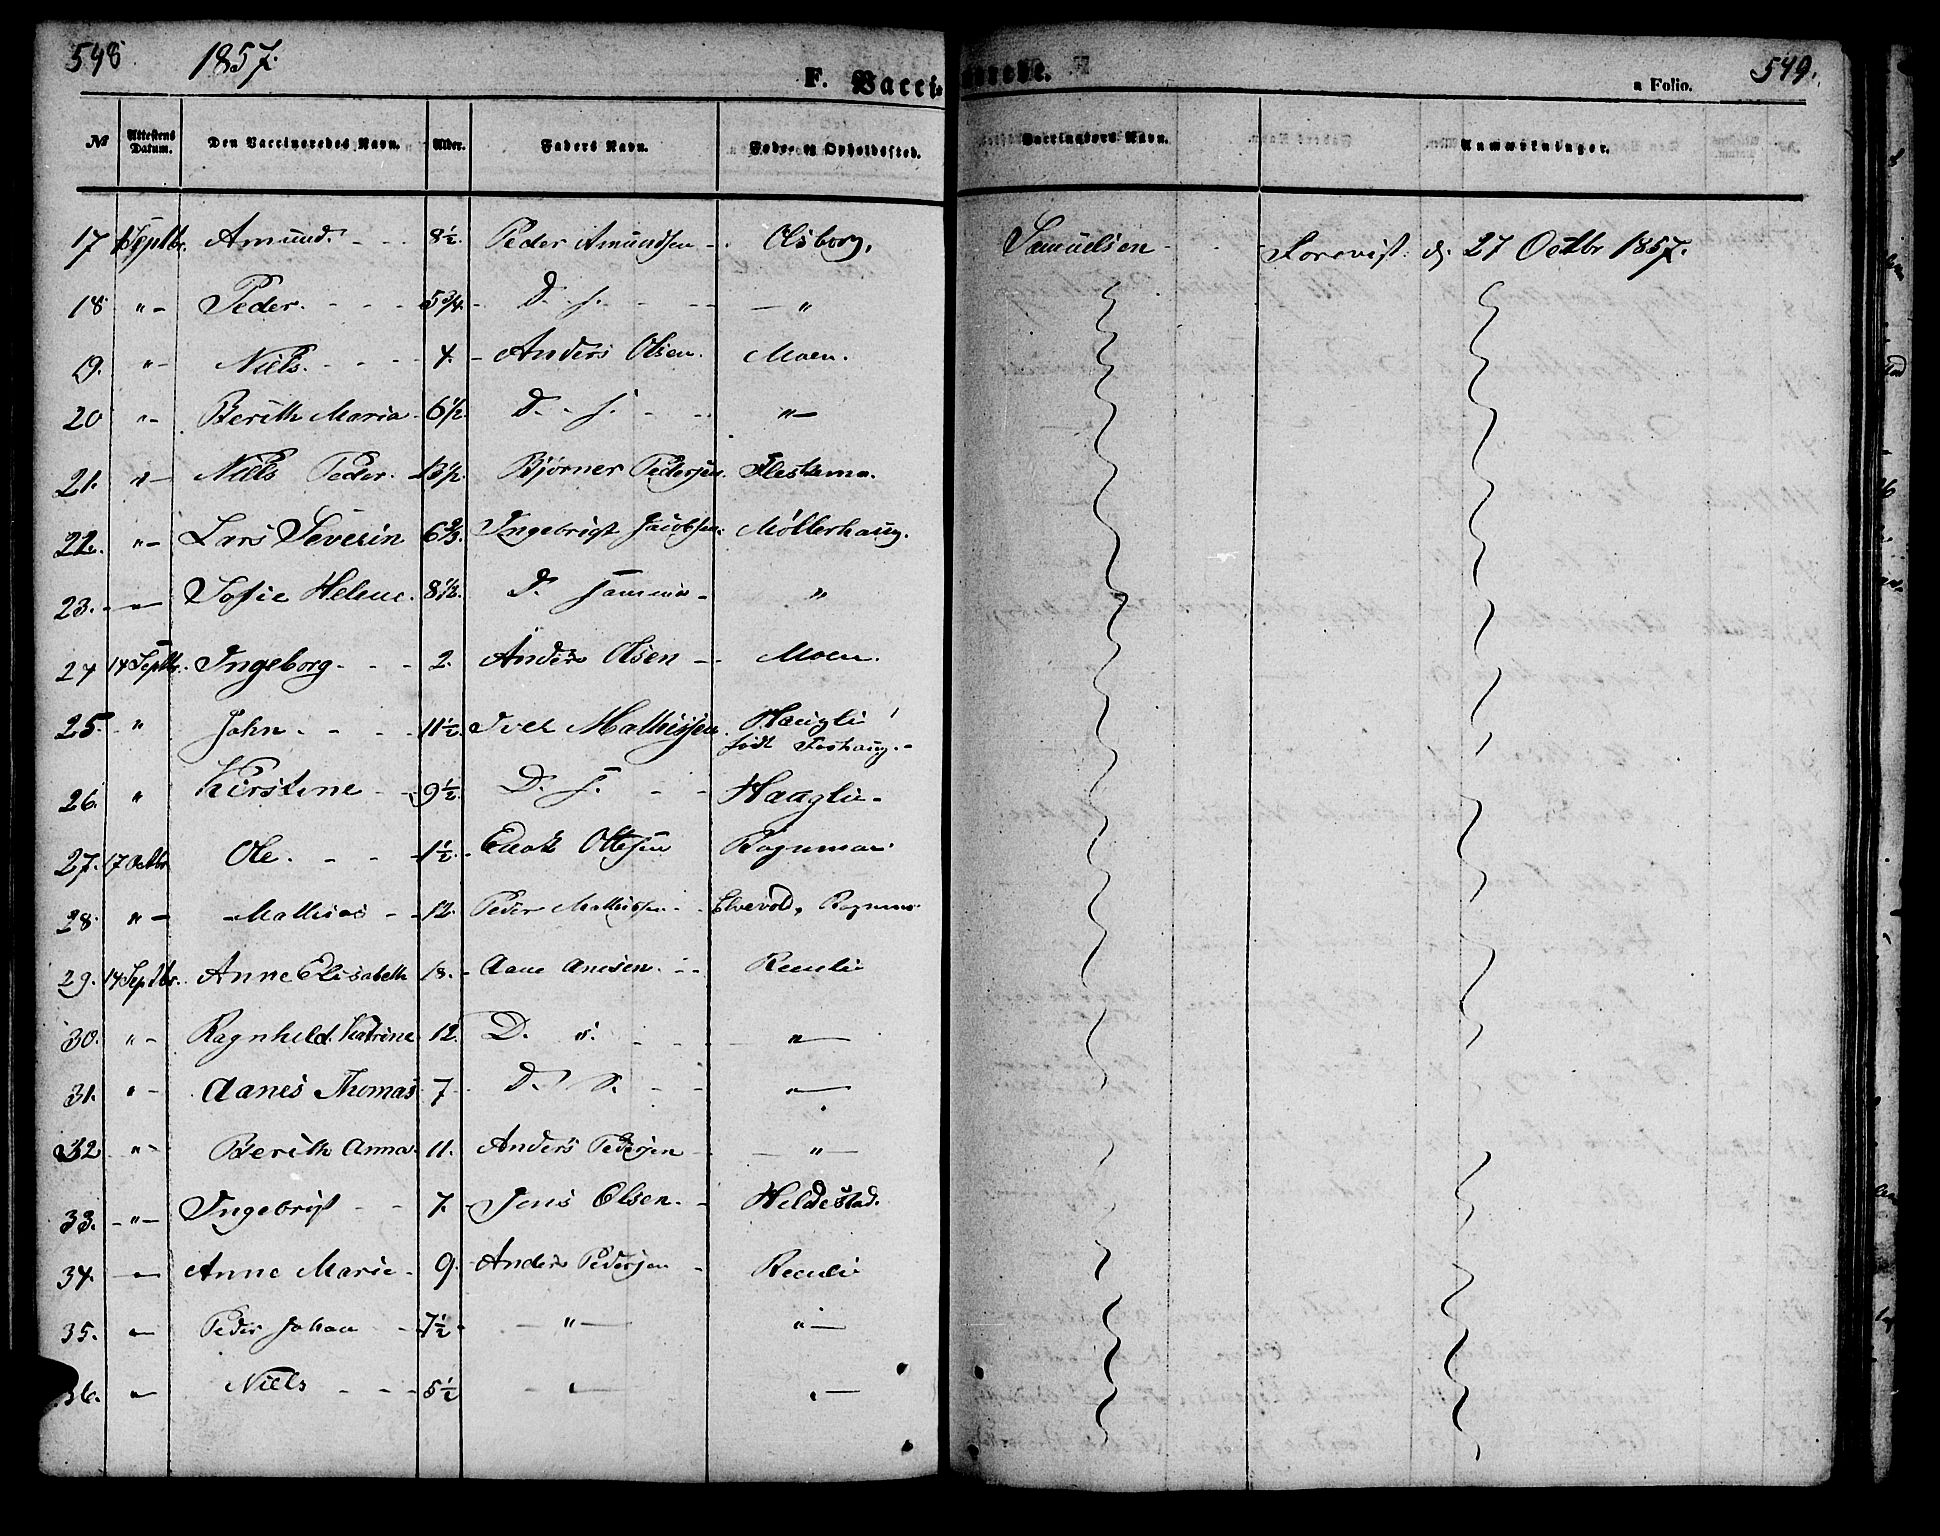 548. 1857. F. Vacci- nerede. a Folio. 549.
No Attestens Datum. Den Vaccineredes Navn. Alder. Faders Navn. Føde- og Opholdssted. Vaccinators Navn. Anmærkninger.
17 Septbr. Amund. 8½. Peder Amundsen Olsborg. Samuelsen Forevist d. 27 Octbr 1857.
18 " Peder. 5¾. D. s. "
19. " Niels. 4. Anders Olsen. Moen.
20 " Berith Maria 6½ D. s. "
21. " Niels Peder. 13½. Bjørner Pedersen.
22. " Lars Severin 6⅔. Ingebrigt Jacobsen. Møllerhaug.
23. " Sofie Helene. 8½. D. samme "
24 14 Septbr. Ingeborg. 2. Anders Olsen Moen.
25. " John. 11½. Iver Mathissen Haugli
født Foshaug.
26. " Kirstine 9½. D. s. Haugli
27. 17 Octbr Ole. 1½. Enok Ottesen
28. " Mathias 12. Peder Mathissen Elvevold,
29. 14 Septbr. Anne Elisabeth 18. Aane Anesen.
30. " Ragnhild Katrine 12. D. s. "
31. " Aanes Thomas 7 D. s. "
32 " Berith Anna. 11. Anders Pedersen "
33. " Ingebrigt 7. Jens Olsen. Heldestad.
34. " Anne Marie 9. Anders Pedersen
35. " Peder Johan 7½ " "
36. " Niels 5½ " "